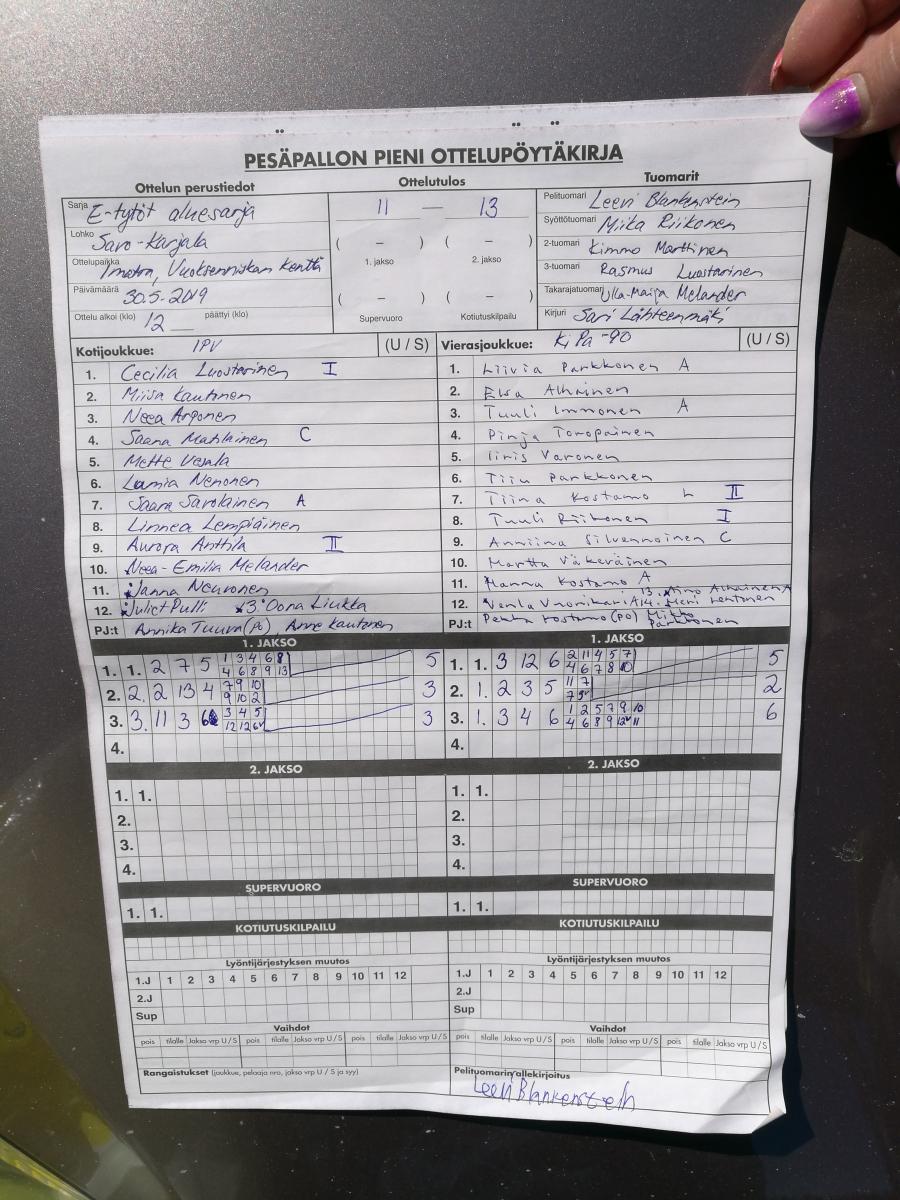 PESÄPALLON PIENI OTTELUPÖYTÄKIRJA
Ottelun perustiedot
Ottelutulos
Tuomarit
Sarja E-tytöt aluesarja
11 — 13
Pelituomari Leevi Blankenstein
Lohko Savo-Karjala
( – ) ( – )
Syöttötuomari Miika Riikonen
Ottelupaikka Imatra, Vuoksenniskan kenttä
1. jakso 2. jakso
2-tuomari Kimmo Marttinen
Päivämäärä 30.5-2019
3-tuomari Rasmus Luostarinen
( – ) ( – )
Takarajatuomari Ulla-Maija Melander
Ottelu alkoi (klo) 12 päättyi (klo)
Supervuoro Kotiutuskilpailu
Kirjuri Sari Lähteenmäki
Kotijoukkue: IPV (U / S)
Vierasjoukkue: KiPa -90 (U / S)
1. Cecilia Luostarinen I
1. Liivia Parkkonen A
2. Miisa Kautonen
2. Elsa Alhainen
3. Neea Arponen
3. Tuuli Immonen A
4. Saana Matilainen C
4. Pinja Toropainen
5. Mette Vesala
5. Iiris Varonen
6. Lumia Nenonen
6. Tiiu Parkkonen
7. Saara Savolainen A
7. Tiina Kostamo L II
8. Linnea Lempiäinen
8. Tuuli Riikonen I
9. Aurora Anttila II
9. Anniina Silvennoinen C
10. Neea-Emilia Melander
10. Martta Väkeväinen
11. Janna Neuvonen
11. Hanna Kostamo A
12. Juliet Pulli 13. Oona Liukka
13. Alhainen A
12. Venla Vuorikari A 14. Meri Lehtonen
PJ:t Annika Tuuva (PJ), Anne Kautonen
PJ:t Pekka Kostamo (PJ) Mikko Parkkonen
1. JAKSO
1. JAKSO
1. 1. 2 7 5 1 3 4 6 8 5
4 6 8 9 13
1. 1. 3 12 6 2 11 4 5 7 5
4 6 7 8 10
2. 2. 2 13 4 7 9 10 3
9 10 2
2. 1. 2 3 5 11 7 2
3. 3. 11 3 6 3 4 5 3
3. 1. 3 4 6 1 2 5 7 9 10 6
4.
4.
2. JAKSO
2. JAKSO
1. 1.
1. 1.
2.
2.
3.
3.
4.
4.
SUPERVUORO
SUPERVUORO
1. 1.
1. 1.
KOTIUTUSKILPAILU
KOTIUTUSKILPAILU
Lyöntijärjestyksen muutos
Lyöntijärjestyksen muutos
1.J 1 2 3 4 5 6 7 8 9 10 11 12
1.J 1 2 3 4 5 6 7 8 9 10 11 12
2.J
2.J
Sup
Sup
Vaihdot
Vaihdot
pois tilalle Jakso vrp U / S pois tilalle Jakso vrp U / S pois tilalle Jakso vrp U / S
pois tilalle Jakso vrp U / S pois tilalle Jakso vrp U / S pois tilalle Jakso vrp U / S
Rangaistukset (joukkue, pelaaja nro, jakso vrp U / S ja syy)
Pelituomarin allekirjoitus
Leevi Blankenstein